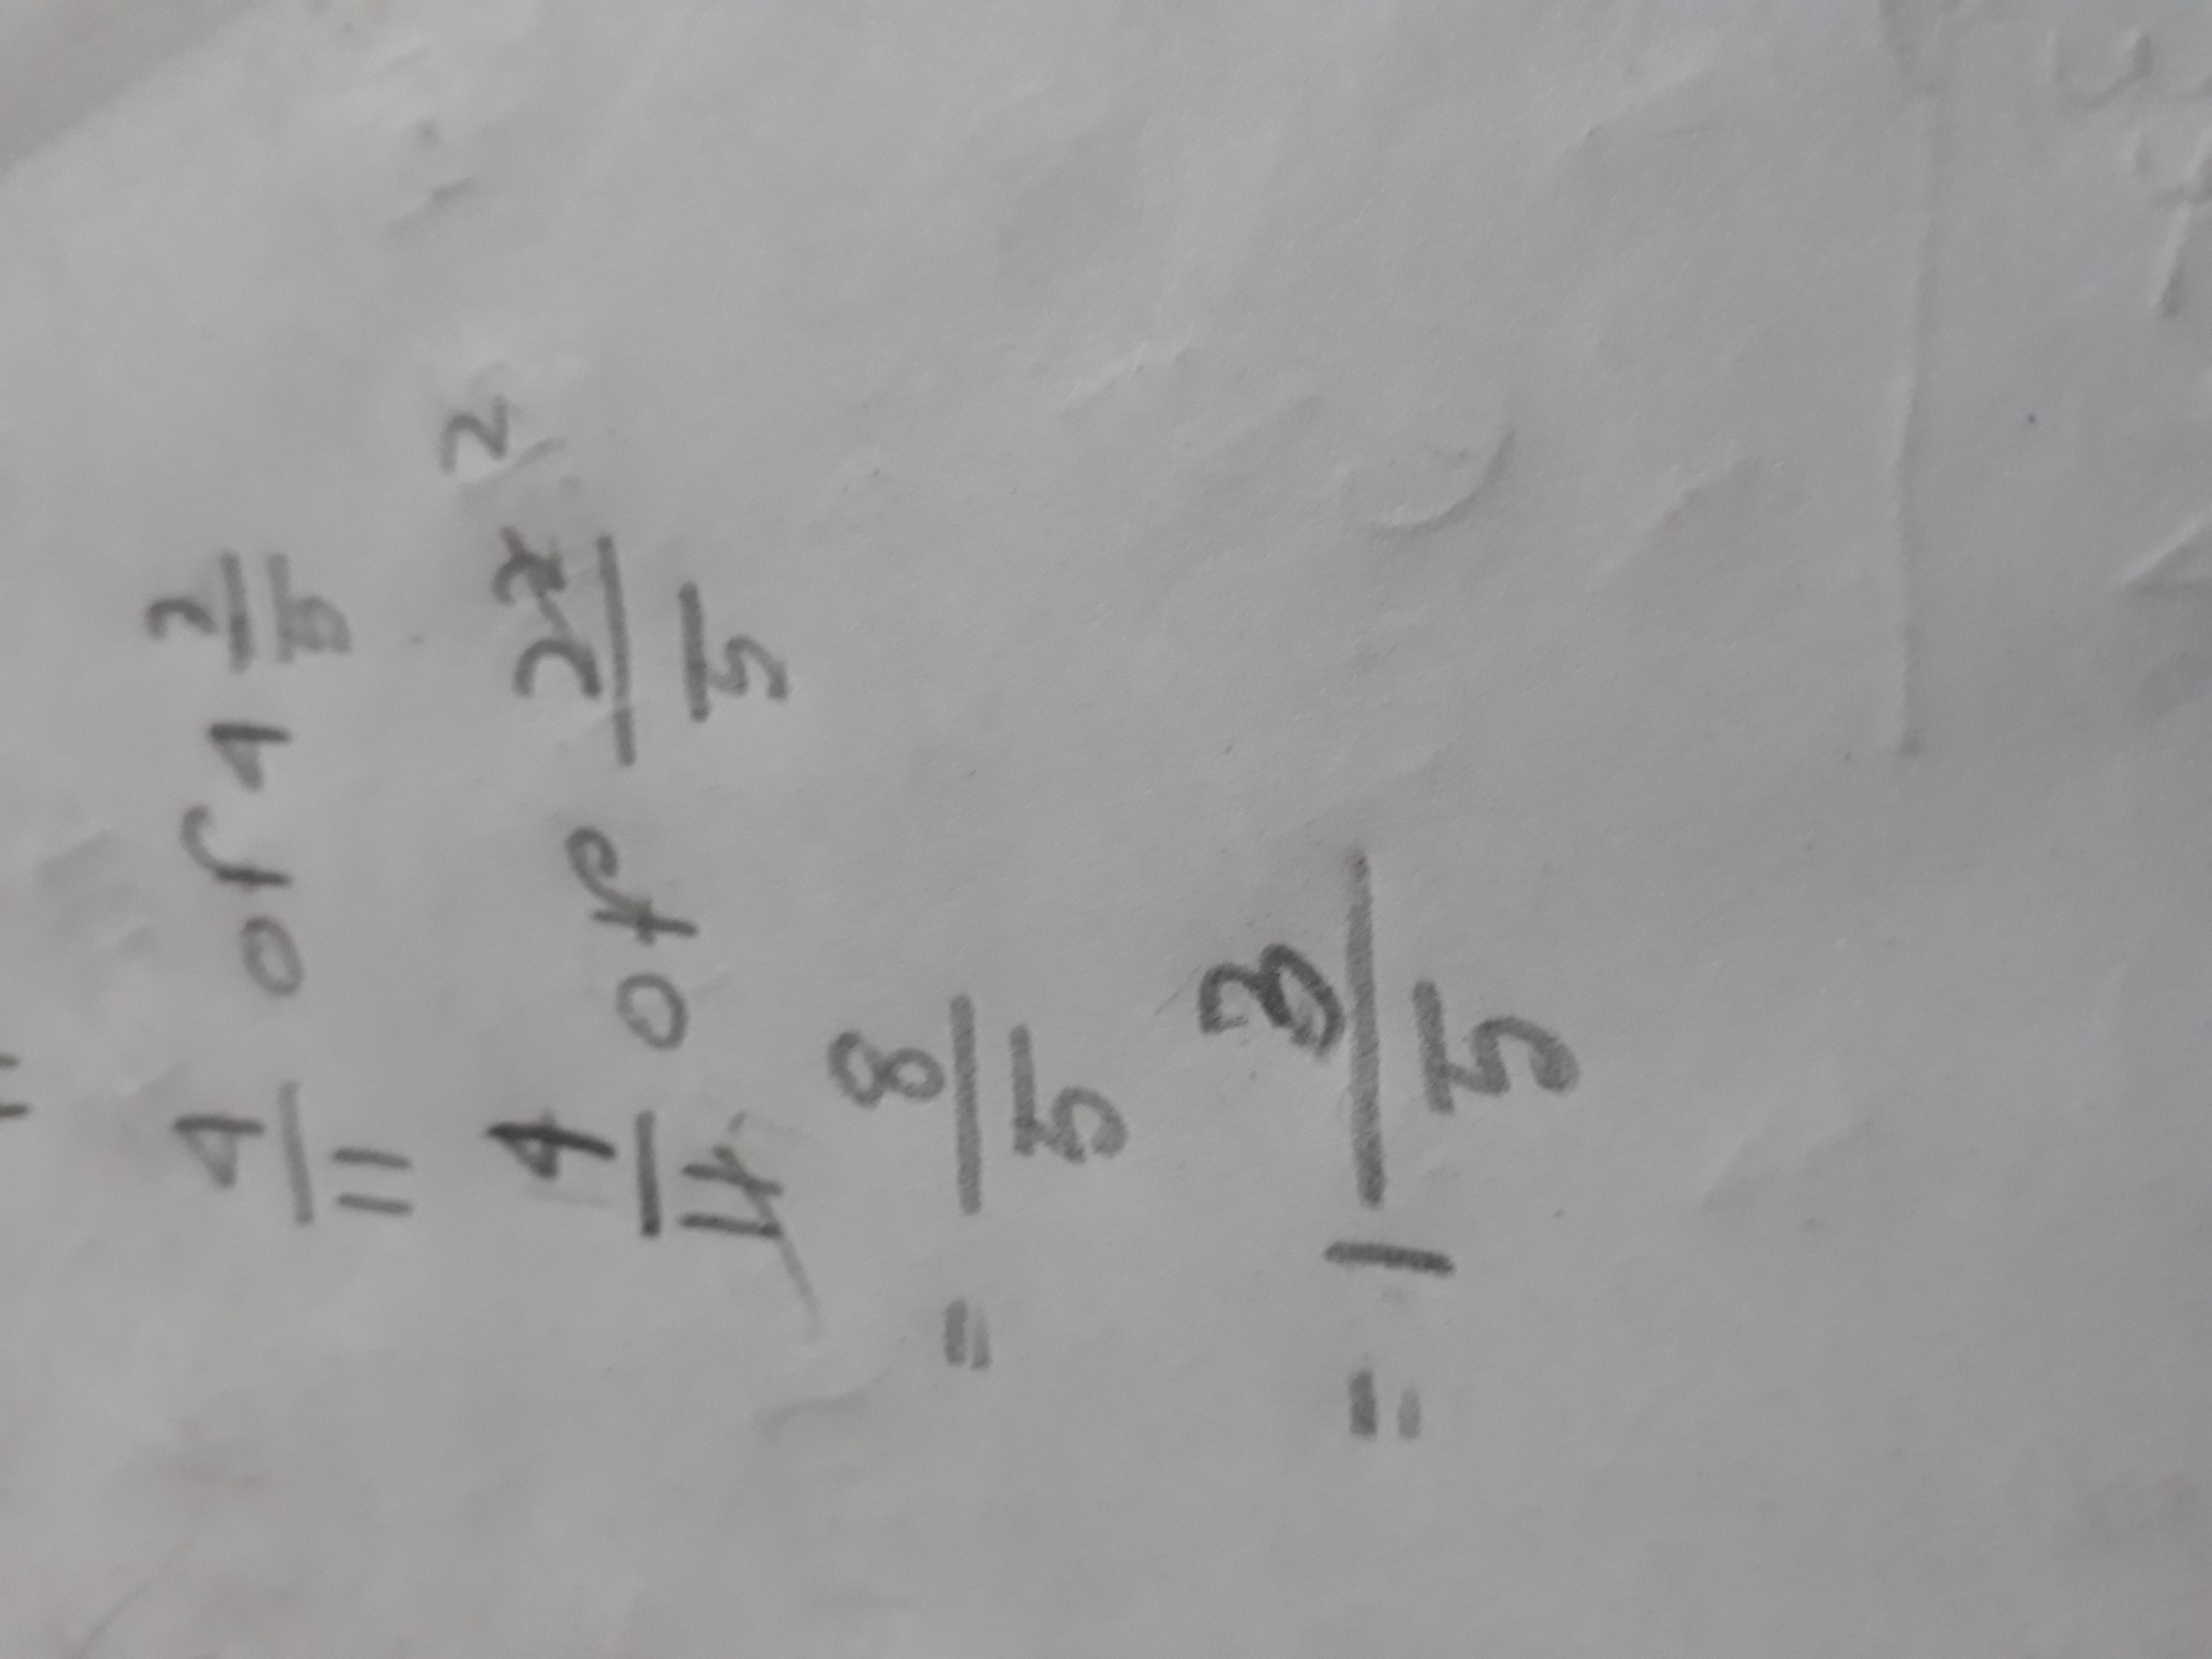 4/11 of 4 2/5
4/11 of 22/5 2
= 8/5
= 1 3/5